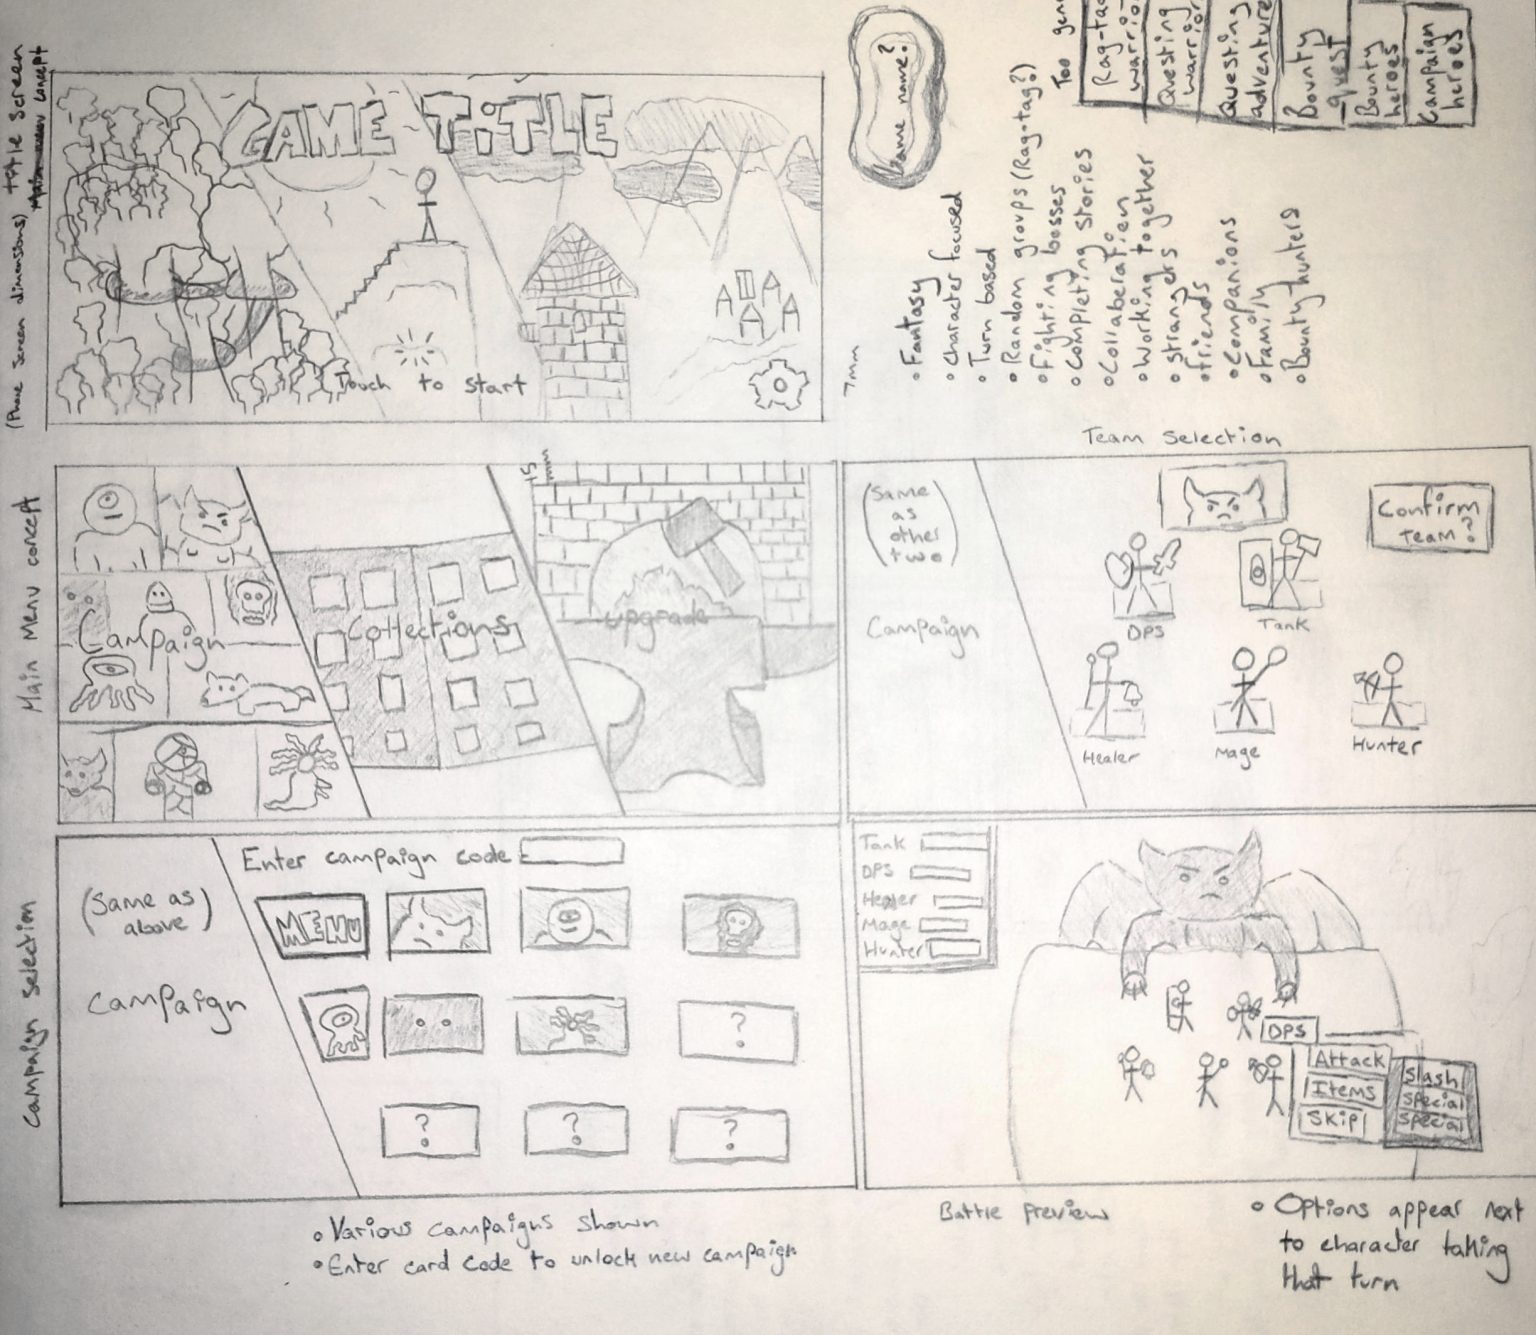 (Phone Screen dimensions)
title Screen
concept
GAME TITLE
Touch to start
Game name?
7mm
• Fantasy
• character focused
• Turn based
• Random groups (Rag-tag?)
• Fighting bosses
• Completing stories
• Collaberation
• Working together
• strangers
• friends
• Companions
• Family
• Bounty hunters
Too
Rag-tag
warrio
Questing
warrior
Questing
adventure
Bounty
quest
Bounty
heroes
Campaign
heroes
Main Menu concept
Campaign
Collections
upgrade
Team Selection
(Same
as
other
two)
Campaign
Confirm
team?
DPS
Tank
Healer
Mage
Hunter
Campaign Selection
(Same as
above)
Campaign
Enter campaign code
MENU
?
?
?
?
• Various campaigns shown
• Enter card code to unlock new campaign
Tank
DPS
Healer
Mage
Hunter
DPS
Attack
Items
Skip
Slash
Special
Special
Battle Preview
• Options appear next
to character taking
that turn